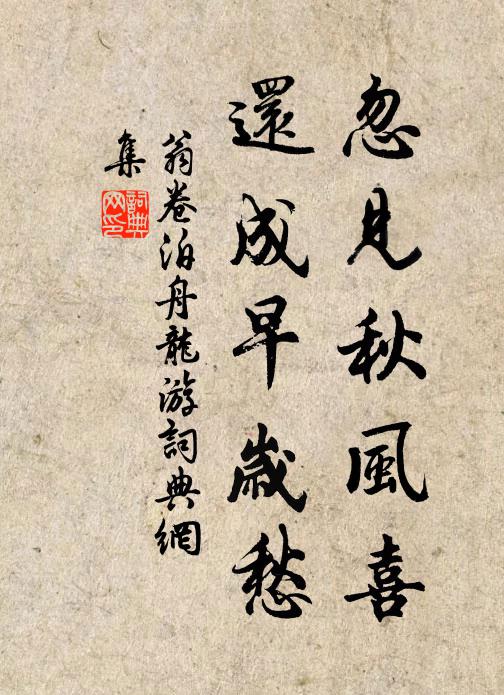 忽見秋風喜
還成早歲愁
翁卷泊舟龍游詞典網
集
詞典
网印